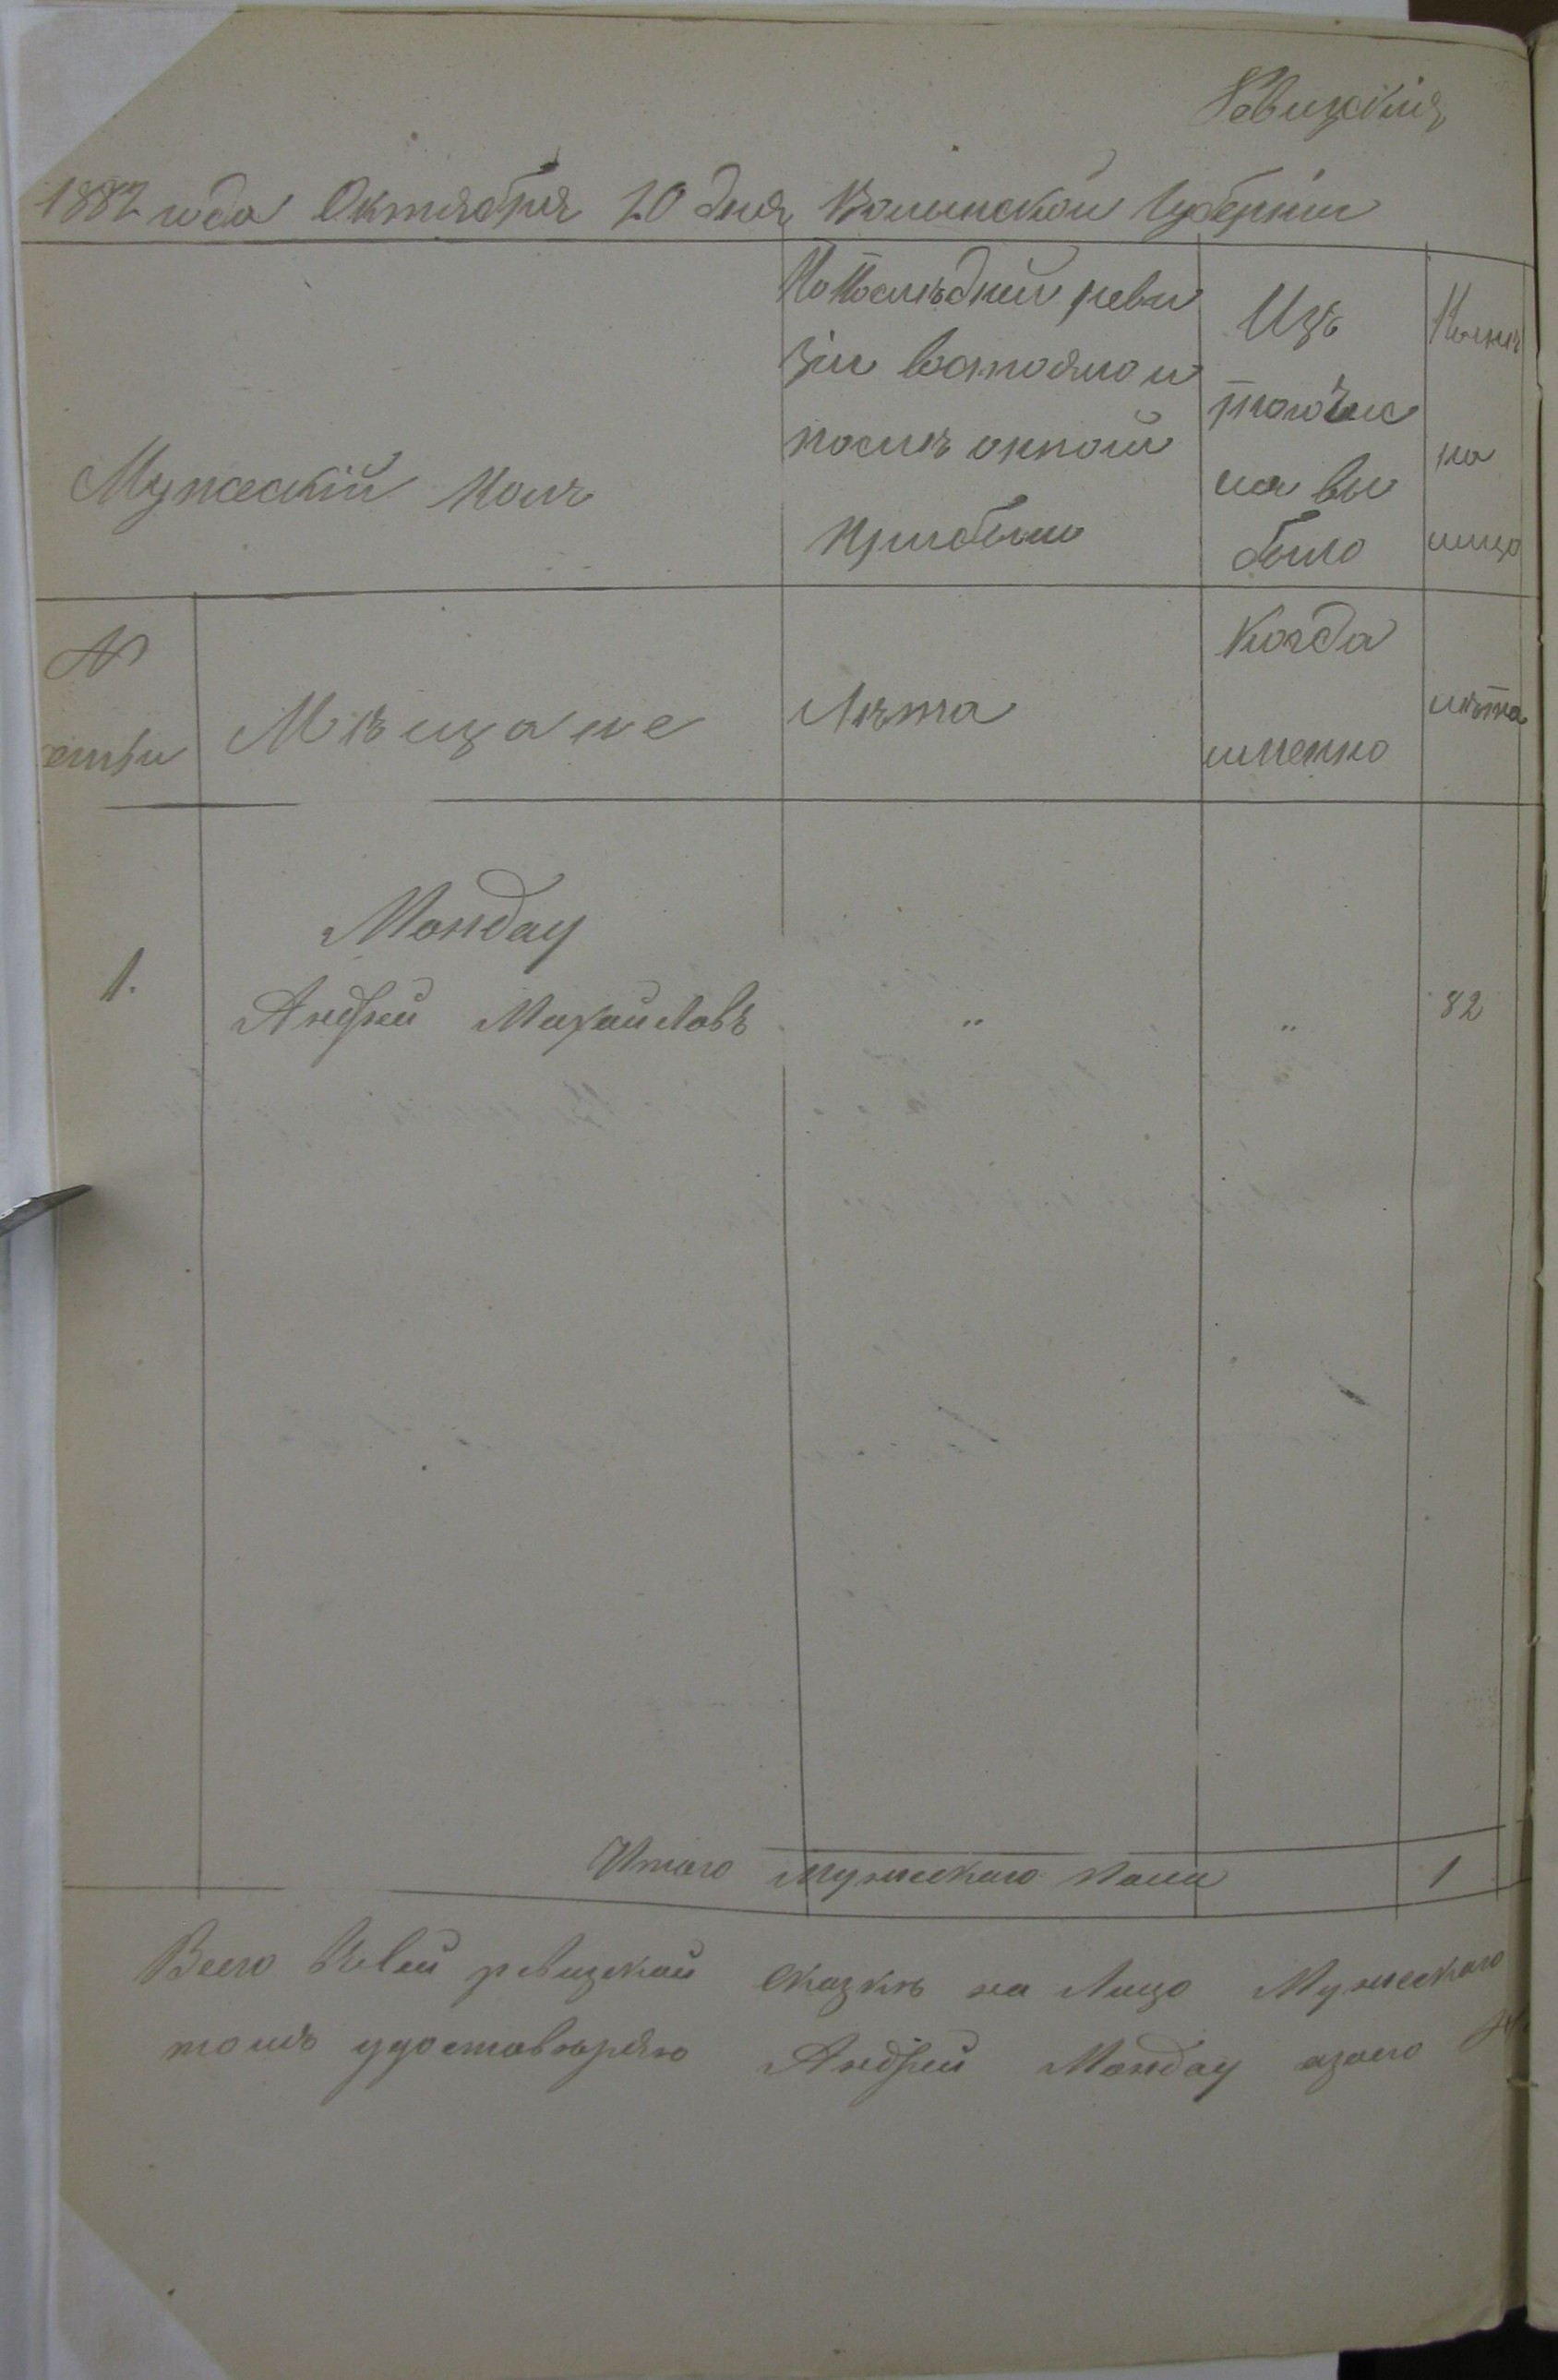 Ревизскія
1882 года Октября 20 дня Волынской Губерніи
Мужескій полъ
По послѣдней реви
зіи состояло и
послѣ оной
прибыло
Изъ
того чис
ла вы
было
Нынѣ
на
лицо
№
семьи
Мѣщане
Лѣта
Когда
именно
лѣта
Мондау
1. Андрей Михайловъ " " 82
Итого мужескаго пола 1
Всего въ сей ревизской сказкѣ на лицо Мужескаго
томъ удостовѣряю Андрей Мондау